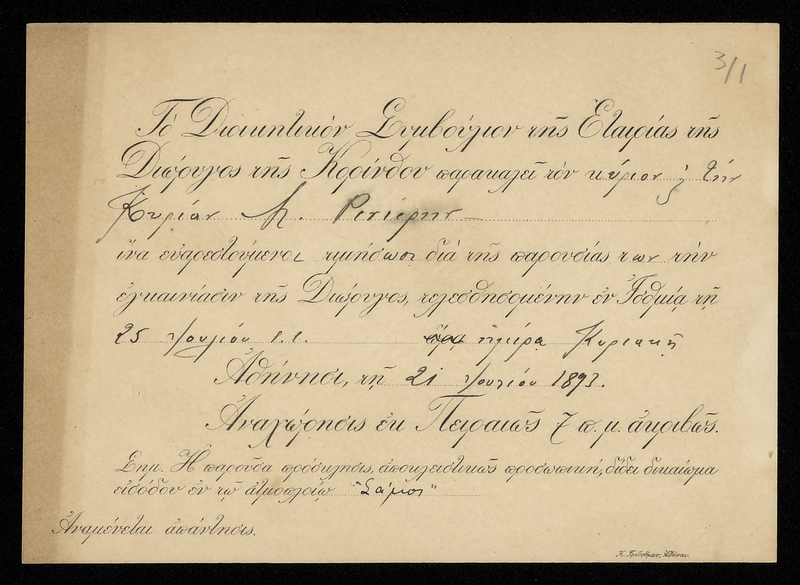 3/1
Τὸ Διοικητικὸν Συμβούλιον τῆς Ἑταιρίας τῆς
Διώρυγος τῆς Κορίνθου παρακαλεῖ τὸν κύριον & τὴν
Κυρίαν Μ. Ρενιέρην
ἵνα εὐαρεστούμενοι τιμήσωσι διὰ τῆς παρουσίας των τὴν
ἐγκαινίασιν τῆς Διώρυγος, τελεσθησομένην ἐν Ἰσθμίᾳ τῇ
25 Ἰουλίου ἡμέρᾳ Κυριακῇ
Ἀθήνησι, τῇ 21 Ἰουλίου 1893.
Ἀναχώρησις ἐκ Πειραιῶς 7 π.μ. ἀκριβῶς.
Σημ. Ἡ παροῦσα πρόσκλησις, ἀποκλειστικῶς προσωπική, δίδει δικαίωμα
εἰσόδου ἐν τῷ ἀτμοπλοίῳ "Σάμος"
Ἀναμένεται ἀπάντησις.